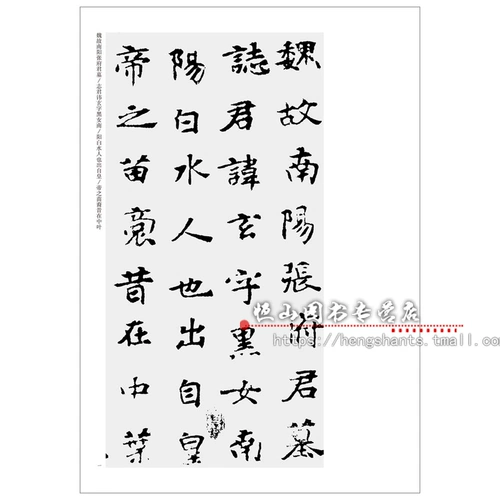 魏故南陽張府君墓
誌君諱玄字黑女南
陽白水人也出自皇
帝之苗裔昔在中葉
魏故南阳张府君墓/志君讳玄字黑女南/阳白水人也出自皇/帝之苗裔昔在中叶
恒山图书专营店
https://hengshants.tmall.com